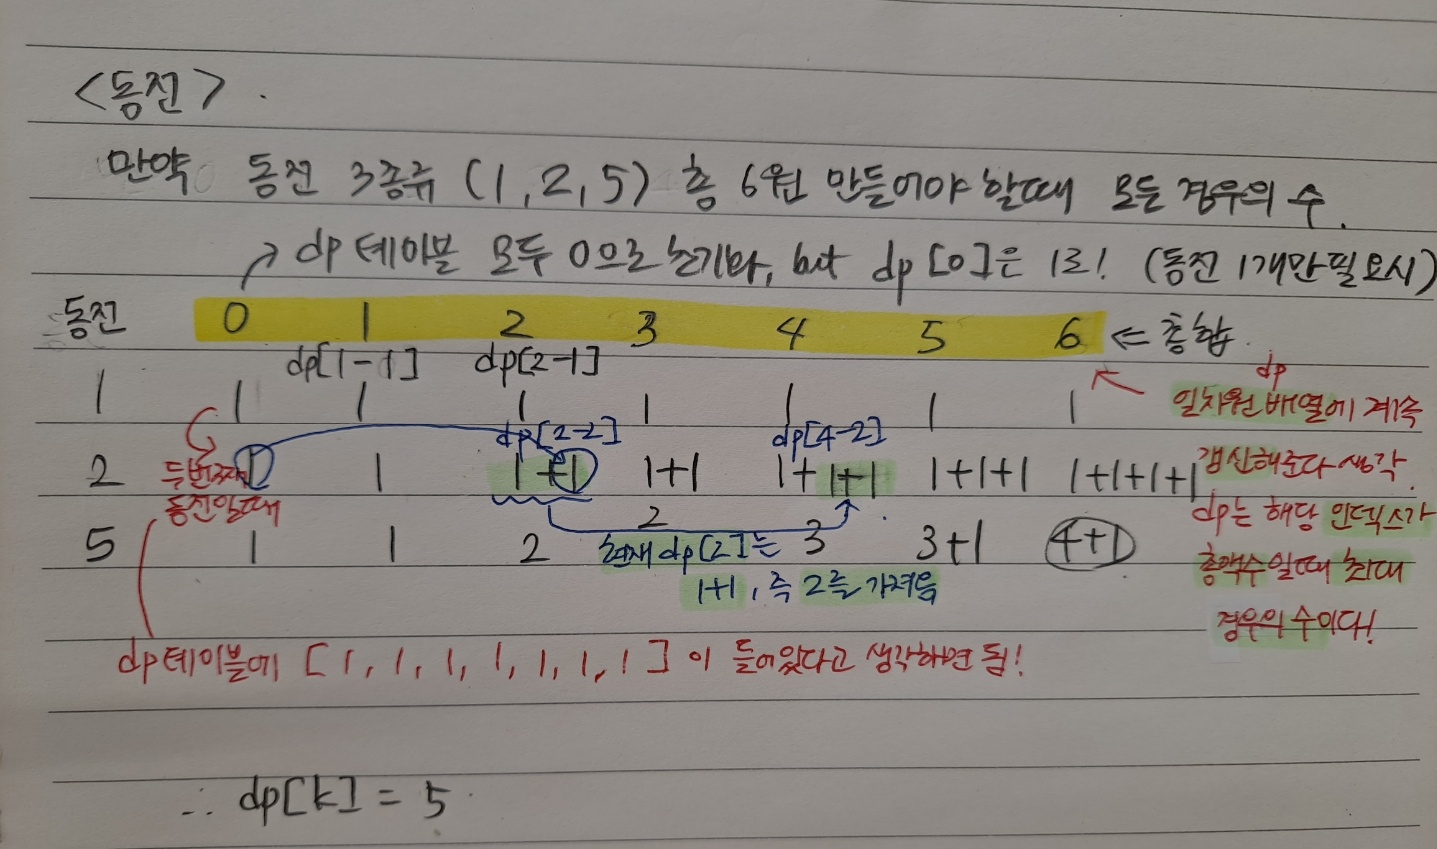 <동전> .
만약 동전 3종류 (1, 2, 5) 총 6원 만들어야 할때 모든 경우의 수.
↗ dp 테이블 모두 0으로 초기화, but dp[0]은 1로! (동전 1개만 필요시)
동전 0 1 2 3 4 5 6 ← 총합.
dp[1-1] dp[2-1]
1 1 1 1 1 1 1 1
dp
일차원 배열에 계속
갱신해준다 생각.
dp는 해당 인덱스가
총액수일때 최대
경우의 수이다!
dp[2-2] dp[4-2]
2 1 1 1+1 1+1 1+1+1 1+1+1 1+1+1+1
두번째
동전일때
5 1 1 2 2 3 3+1 4+1
현재 dp[2]는
1+1, 즉 2를 가져옴
dp테이블에 [1, 1, 1, 1, 1, 1, 1] 이 들어있다고 생각하면 됨!
∴ dp[k] = 5